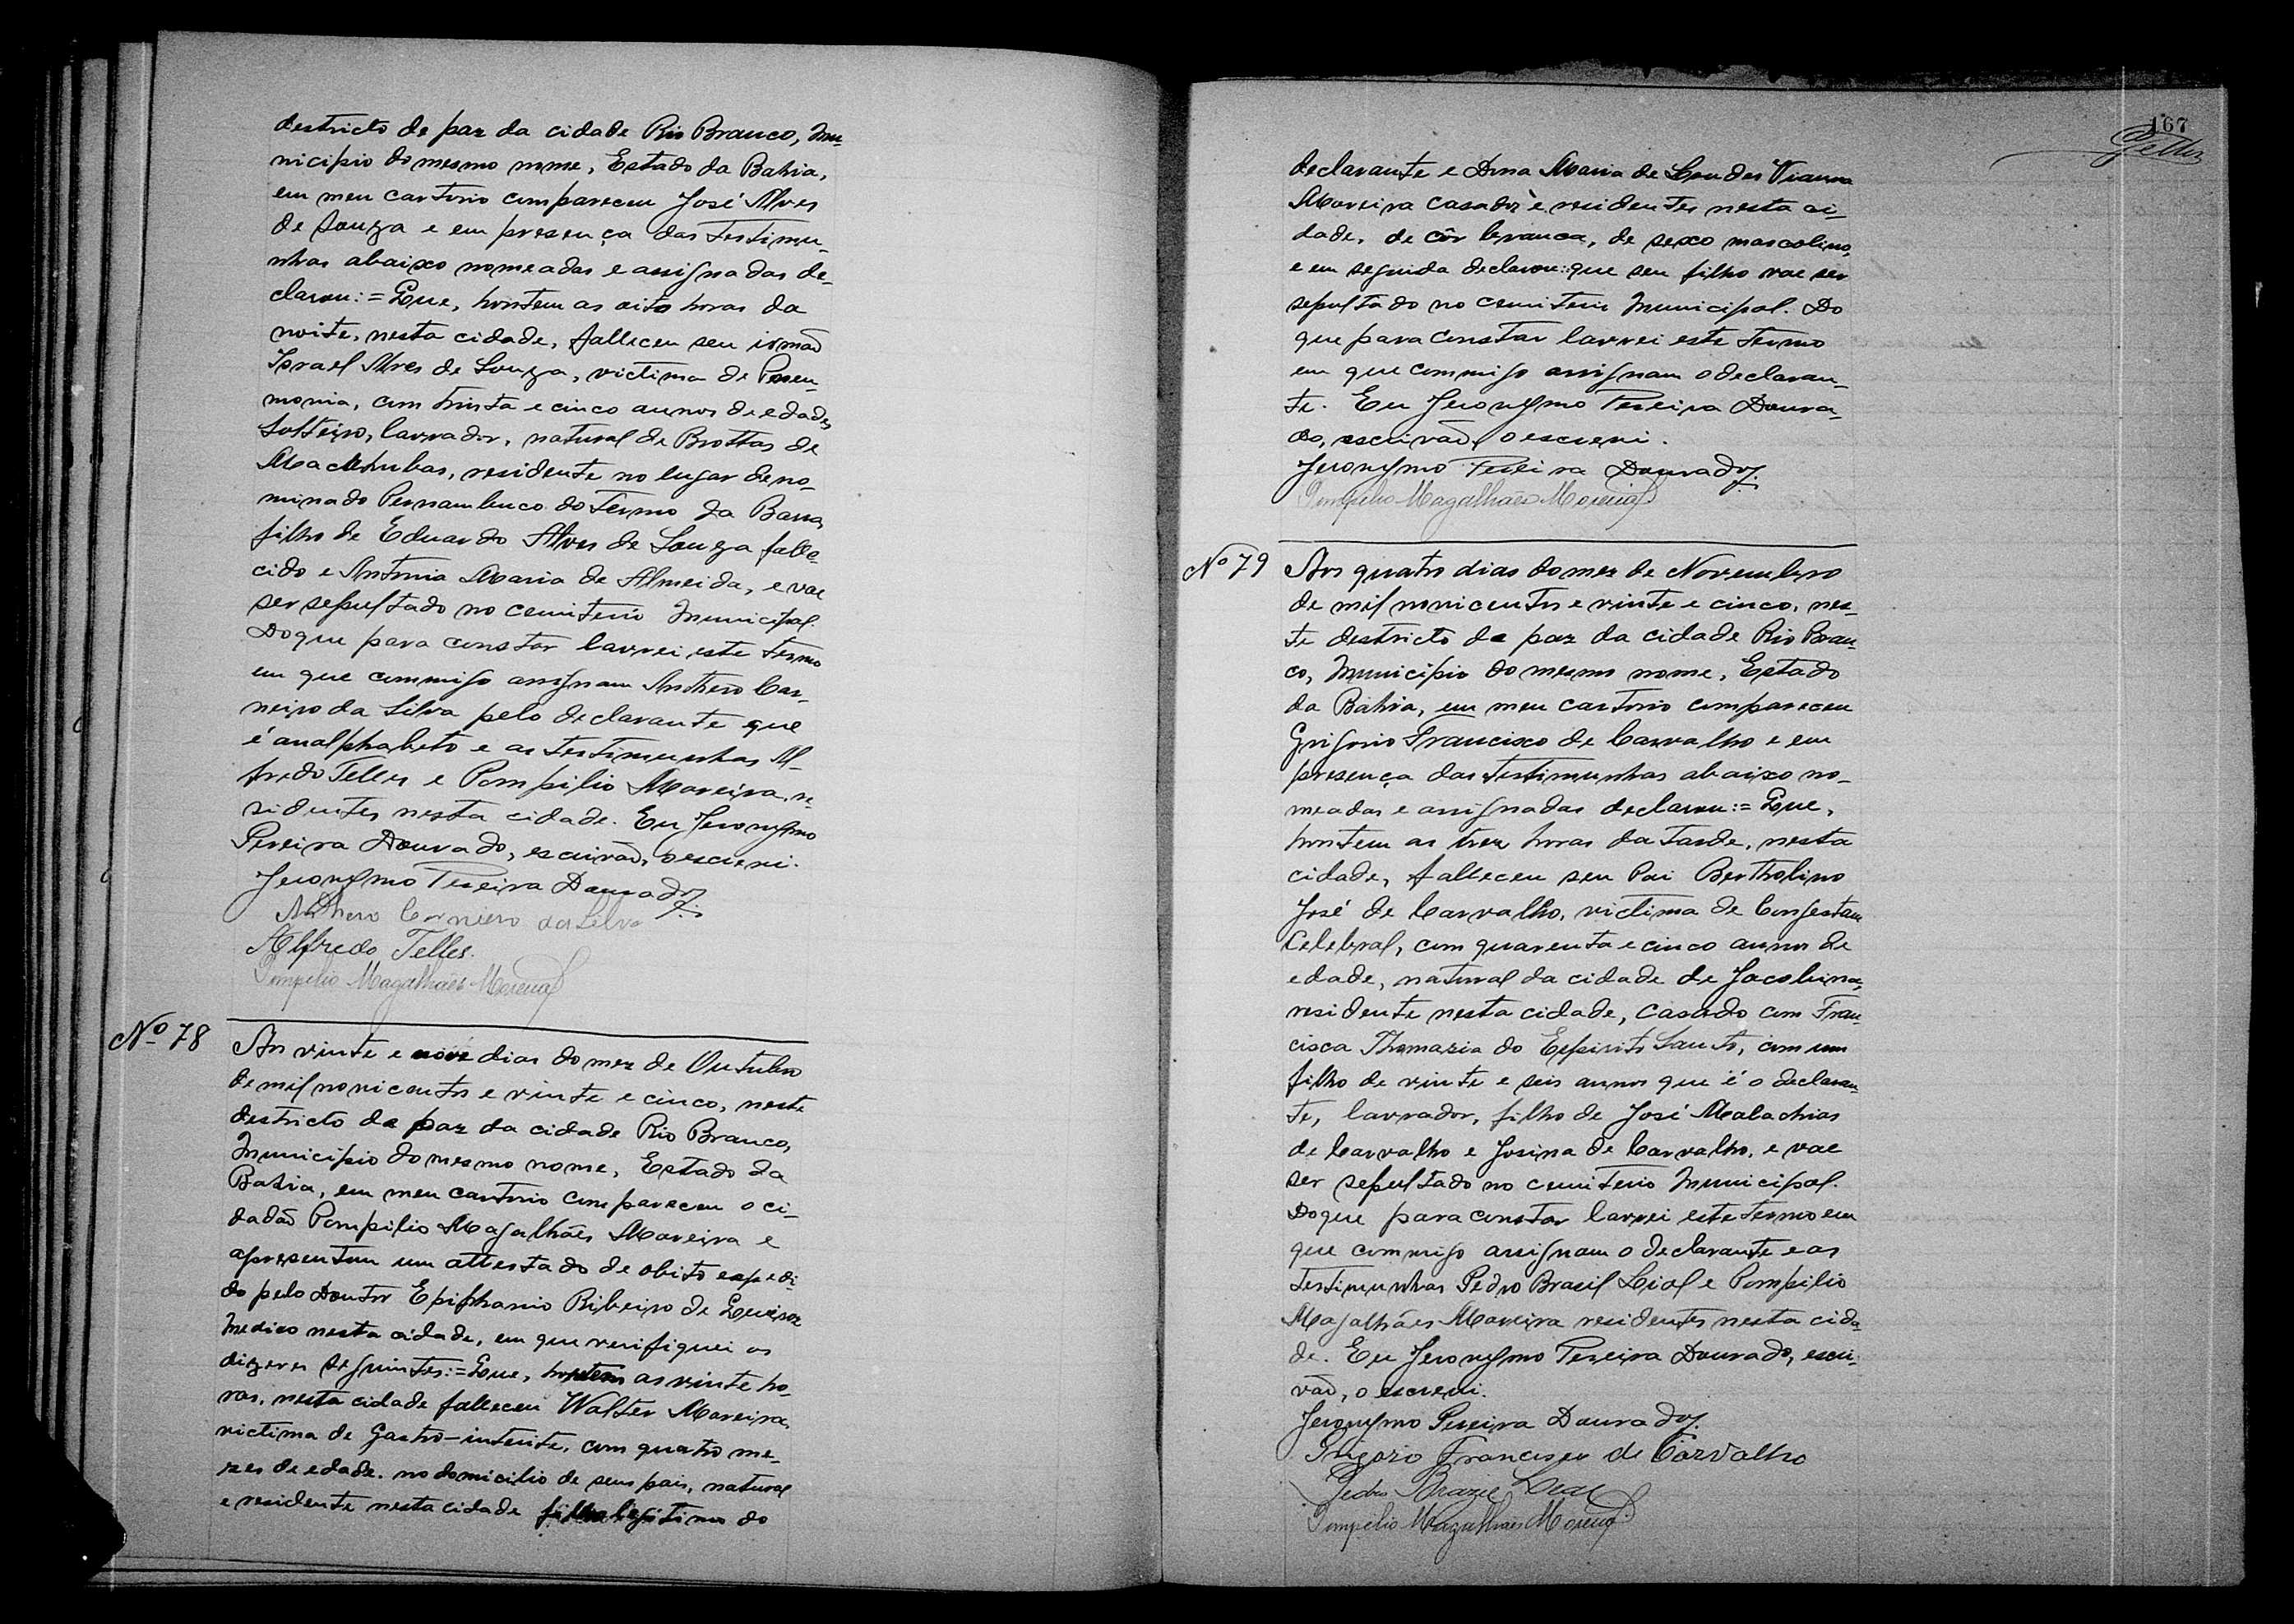 destricto de paz da cidade Rio Branco, mu-
nicipio do mesmo nome, Estado da Bahia,
em meu cartorio compareceu José Alves
de Souza e em presença das testimu-
nhas abaixo nomeadas e assignadas de-
clarou:= Que, hontem as oito horas da
noite, nesta cidade, falleceu seu irmão
Israel Alves de Souza, victima de Pneu-
monia, com trinta e cinco annos de edade,
solteiro, lavrador, natural de Brottas de
Macahubas, residente no lugar deno-
minado Pernambuco do Termo da Barra,
filho de Eduardo Alves de Souza falle-
cido e Antonia Maria de Almeida, e vae
ser sepultado no cemiterio Municipal.
Do que para constar lavrei este termo
em que commigo assignam Anthero Car-
neiro da Silva pelo declarante que
é analphabeto e as testimunhas Al-
fredo Telles e Pompilio Moreira, re-
sidentes nesta cidade. Eu Jeronymo
Pereira Dourado, escrivão, o escrevi.
Jeronymo Pereira Dourado
Anthero Carneiro da Silva
Alfredo Telles.
Pompilio Magalhães Moreira
Nº 78
Aos vinte e nove dias do mez de Outubro
de mil novicentos e vinte e cinco, neste
destricto de paz da cidade Rio Branco,
Municipio do mesmo nome, Estado da
Bahia, em meu cartorio compareceu o ci-
dadão Pompilio Magalhães Moreira e
apresentou um attestado de obito expedi-
do pelo Doutor Epiphanio Ribeiro de Queiroz
Medico nesta cidade, em que verifiquei os
dizeres seguintes:= Que, hontem as vinte ho-
ras, nesta cidade falleceu Walter Moreira,
victima de Gastro-interite, com quatro me-
zes de edade. no domicilio de seus pais, natural
e residente nesta cidade filho legitimo do
167
Telles
declarante e Dona Maria de Lourdes Vianna
Moreira casados e residentes nesta ci-
dade, de côr branca, de sexo mascolino,
e em seguida declarou: que seu filho vae ser
sepultado no cemiterio Municipal. Do
que para constar lavrei este termo
em que commigo assignam o declaran-
te. Eu Jeronymo Pereira Doura-
do, escrivão, o escrevi.
Jeronymo Pereira Dourado
Pompilio Magalhães Moreira
Nº 79
Aos quatro dias do mez de Novembro
de mil novicentos e vinte e cinco, nes-
te destricto de paz da cidade Rio Bran-
co, Municipio do mesmo nome, Estado
da Bahia, em meu cartorio compareceu
Grigorio Francisco de Carvalho e em
presença das testimunhas abaixo no-
meadas e assignadas declarou:= Que,
hontem as trez horas da tarde, nesta
cidade, falleceu seu Pai Bertholino
José de Carvalho, victima de Congestam
Celebral, com quarenta e cinco annos de
edade, natural da cidade de Jacobina,
residente nesta cidade, casado com Fran-
cisca Thomazia do Espirito Santo, com um
filho de vinte e seis annos que é o declaran-
te, lavrador, filho de José Malachias
de Carvalho e Josina de Carvalho, e vae
ser sepultado no cemiterio Municipal.
Do que para constar lavrei este termo em
que commigo assignam o declarante e as
testimunhas Pedro Brasil Lial e Pompilio
Magalhães Moreira residentes nesta cida-
de. Eu Jeronymo Pereira Dourado, escri-
vão, o escrevi.
Jeronymo Pereira Dourado
Grigorio Francisco de Carvalho
Pedro Brazil Leal
Pompilio Magalhães Moreira